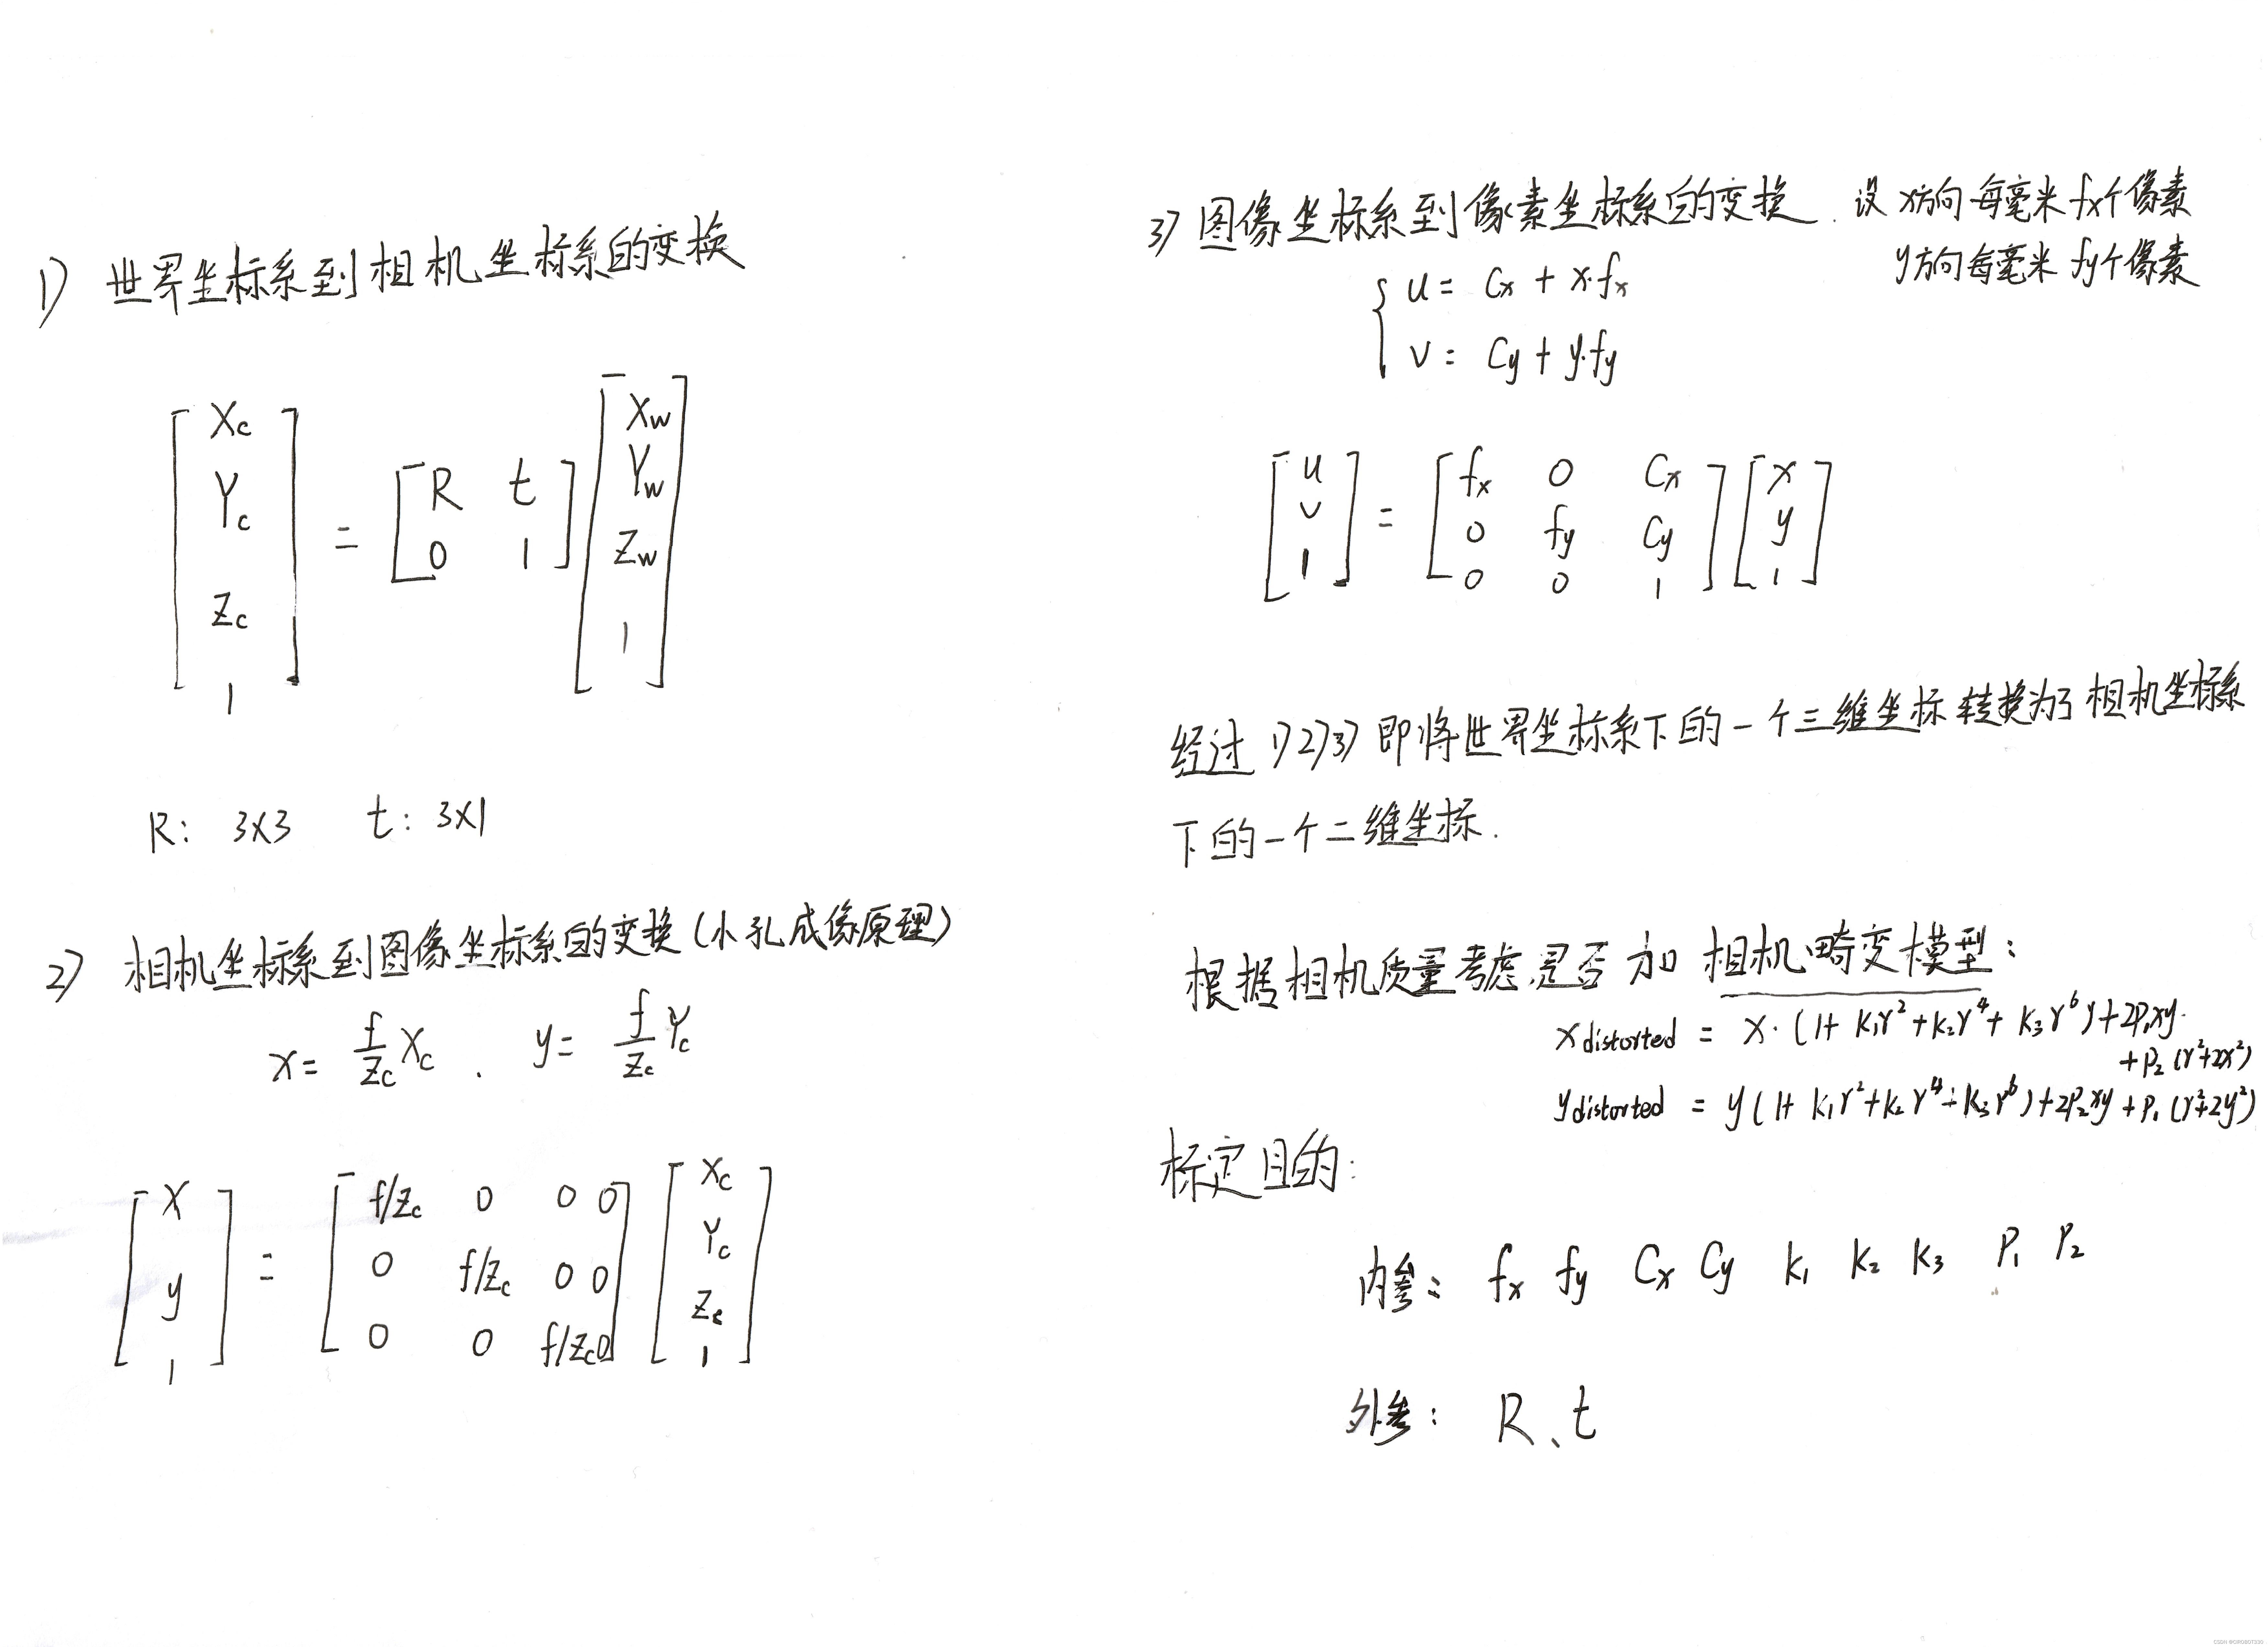 1) 世界坐标系到相机坐标系的变换
[Xc Yc Zc 1] = [R t 0 1] [Xw Yw Zw 1]
R: 3x3 t: 3x1
2) 相机坐标系到图像坐标系的变换(小孔成像原理)
x= f/Zc Xc . y= f/Zc Yc
[x y 1] = [f/Zc 0 0 0 0 f/Zc 0 0 0 0 f/Zc 0] [Xc Yc Zc 1]
3) 图像坐标系到像素坐标系的变换. 设 x方向每毫米fx个像素
y方向每毫米fy个像素
{ u= Cx + x·fx
v= Cy + y·fy
[u v 1] = [fx 0 Cx 0 fy Cy 0 0 1] [x y 1]
经过 1)2)3) 即将世界坐标系下的一个三维坐标转换为了相机坐标系
下的一个二维坐标.
根据相机质量考虑是否加相机畸变模型:
x distorted = x·(1+ k₁r²+k₂r⁴+ k₃r⁶)+2P₁xy.
+P₂(r²+2x²)
y distorted = y(1+ k₁r²+k₂r⁴+k₃r⁶)+2P₂xy+P₁(r²+2y²)
标定目的:
内参: fx fy Cx Cy k₁ k₂ k₃ P₁ P₂
外参: R、t
CSDN